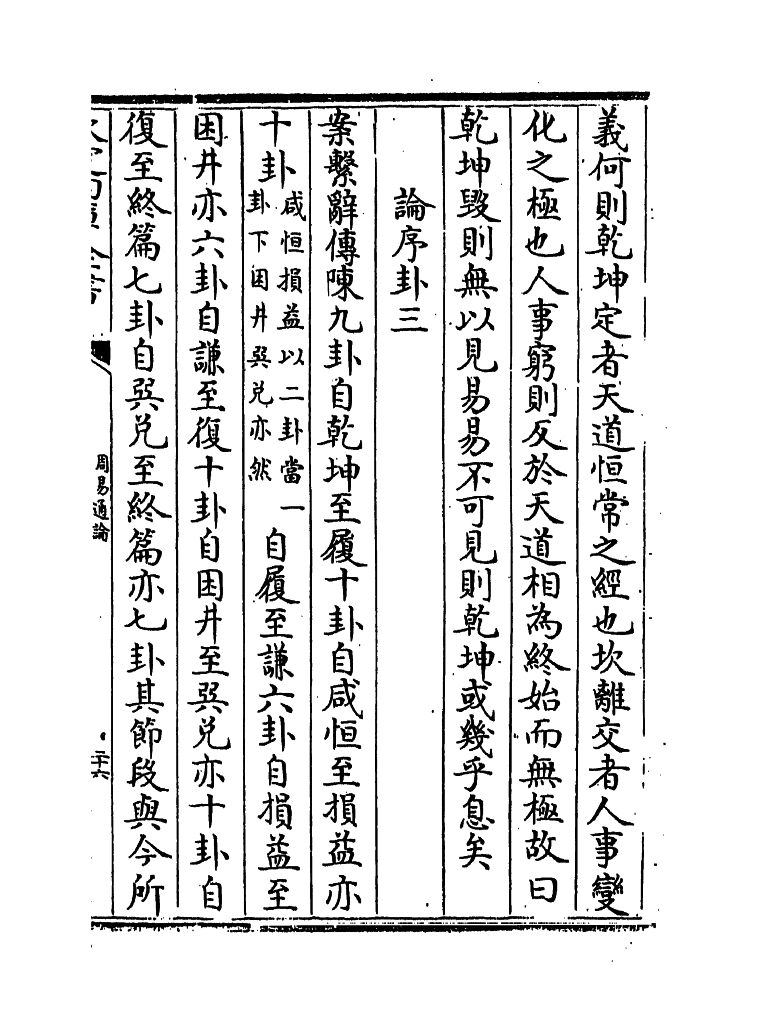 義何則乾坤定者天道恒常之經也坎離交者人事變
化之極也人事窮則反於天道相為終始而無極故曰
乾坤毀則無以見易易不可見則乾坤或幾乎息矣
論序卦三
案繫辭傳陳九卦自乾坤至履十卦自咸恒至損益亦
十卦咸恒損益以二卦當一卦下困井巽兌亦然自履至謙六卦自損益至
困井亦六卦自謙至復十卦自困井至巽兌亦十卦自
復至終篇七卦自巽兌至終篇亦七卦其節段與今所
周易通論
二十六